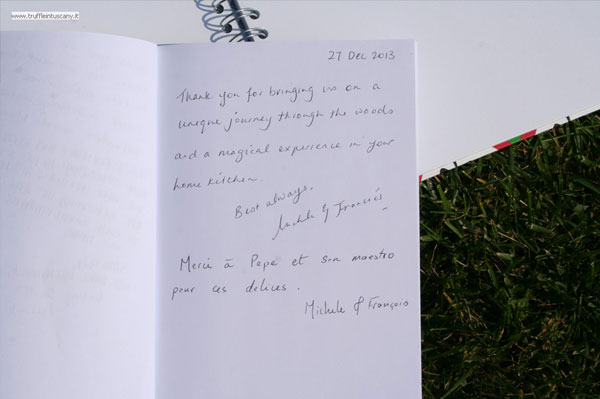 www.truffleintuscany.it
27 Dec 2013
Thank you for bringing us on a
unique journey through the woods
and a magical experience in your
home kitchen.
Best always,
Michele & Francois
Merci à Pepe et son maestro
pour ces delices.
Michele & François